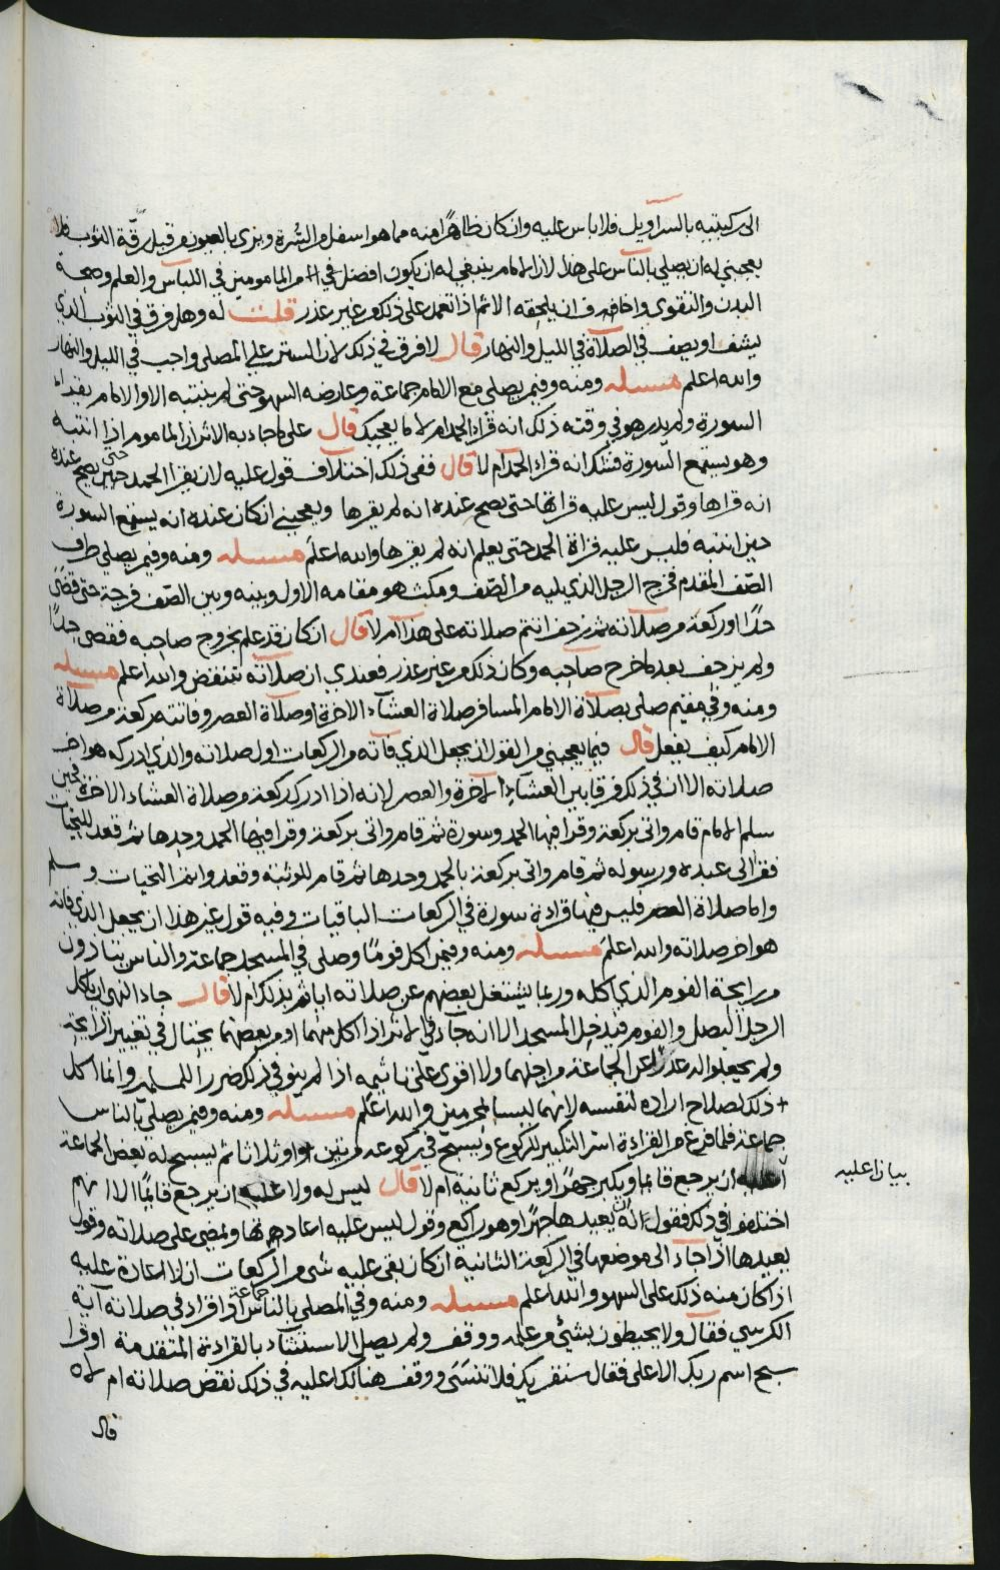 الى ركبتيه بالسراويل فلا باس عليه وان كان ظاهرًا منه مما هو اسفل من السُّرة ويرى بالعيون من قبل رقّة الثوب فلا
يعجبني له ان يصلي بالناس على هذا لان الامام ينبغي له ان يكون افضل من المامومين في اللباس والعلم وصحة
البدن والتقوى واخاف ان يلحقه الاثم اذا تعمل على ذلك من غير عذر قلت له وهل فرق في الثوب الذي
يشف او يصف في الصلاة في الليل والنهار قال لا فرق في ذلك لان الستر على المصلي واجب في الليل والنهار
والله اعلم مسئله ومنه وفيمن يصلي مع الامام جماعة وعارضه السهو حتى لم ينتبه الا والامام يقرا
السورة ولم يدر هو في وقته ذلك انه قرا الحمد ام لا ما يعجبك قال على ما جاء به الاثر ان الماموم اذا انتبه
وهو يستمع السورة فشك انه قرا الحمد ام لا قال ففي ذلك اختلاف قول عليه ان يقرا الحمد حتى يصح عنده
انه قراها وقول ليس عليه قراتها حتى يصح عنده انه لم يقرها ويعجبني ان كان عنده انه يستمع السورة
حين انتبه فليس عليه قراة الحمد حتى يعلم انه لم يقرها والله اعلم مسئله ومنه وفيمن يصلي طرف
الصف المقدم فخرج الرجل الذي يليه من الصف ومكث هو مقامه الاول وبينه وبين الصف فرجة حتى قضى
حدًا او ركعة من صلاته ثم زحف اتتم صلاته على هذا ام لا قال ان كان قد علم بخروج صاحبه فقضى حدًا
ولم يزحف بعد ما خرج صاحبه وكان ذلك من غير عذر فعندي ان صلاته تنتقض والله اعلم مسئله
ومنه وفي مقيم صلى بصلاة الامام المسافر صلاة العشاء الاخرة او صلاة العصر وفاتته ركعة من صلاة
الامام كيف يفعل قال فيما يعجبني من القول ان يجعل الذي فاته من الركعات اول صلاته والذي ادركه هو اخر
صلاته الا ان في ذلك فرقا بين العشاء الآخرة والعصر لانه اذا ادرك ركعة من صلاة العشاء الاخرة فحين
سلم الامام قام واتى بركعة وقرا فيها الحمد وسورة ثم قام واتى بركعة وقرا فيها الحمد وحدها ثم قعد للتحيات
فقرا الى عبده ورسوله ثم قام واتى بركعة بالحمد وحدها ثم قام للوثبة وقعد واتم التحيات وسلم
واما صلاة العصر فليس فيها قراءة سورة في الركعات الباقيات وفيه قول غير هذا ان يجعل الذي فاته
هو اخر صلاته والله اعلم مسئله ومنه وفيمن اكل فومًا وصلى في المسجد جماعة والناس يتاذون
من رايحة الفوم الذي اكله وربما يشتغل بعضهم عن صلاته اياثم بذلك ام لا قال جاء النهي ان ياكل
الرجل البصل والفوم فيدخل المسجد الا انه جاء في الاثر اذا اكل منهما او من بعضهما يحتال في تغيير الرايحة
ولم يجعلوا له عذرًا عن الجماعة من اجلهما ولا اقوى على تاثيمه اذا لم ينو في ذلك ضرر المسلمين وانما اكل
ذلك لصلاح اراده لنفسه لانهما ليسا بمحرمين والله اعلم مسئله ومنه وفيمن يصلي بالناس
جماعة فلما فرغ من القراءة اسر التكبير للركوع ويسبح في ركوعه مرتين او ثلاثا ثم يسبح له بعض الجماعة
اعليه ان يرجع قايما ويكبر جهرًا ويركع ثانية ام لا قال ليس له ولا عليه ان يرجع قايمًا الا انهم
اختلفوا في ذلك فقول انه يعيدها جهرًا وهو راكع وقول ليس عليه اعادتها ويمضي على صلاته وقول
يعيدها اذا جاء الى موضعها في الركعة الثانية ان كان بقي عليه شيء من الركعات ان لا اعادة عليه
اذا كان منه ذلك على السهو والله اعلم مسئله ومنه وفي المصلي بالناس جماعة او اقرا في صلاته آية
الكرسي فقال ولا يحيطون بشيء من علمه ووقف ولم يصل الاستثناء بالقراءة المتقدمة او قرا
سبح اسم ربك الاعلى فقال سنقريك فلا تنسَى ووقف هنالك اعليه في ذلك نقض صلاته ام لا
قال
بيان اعليه